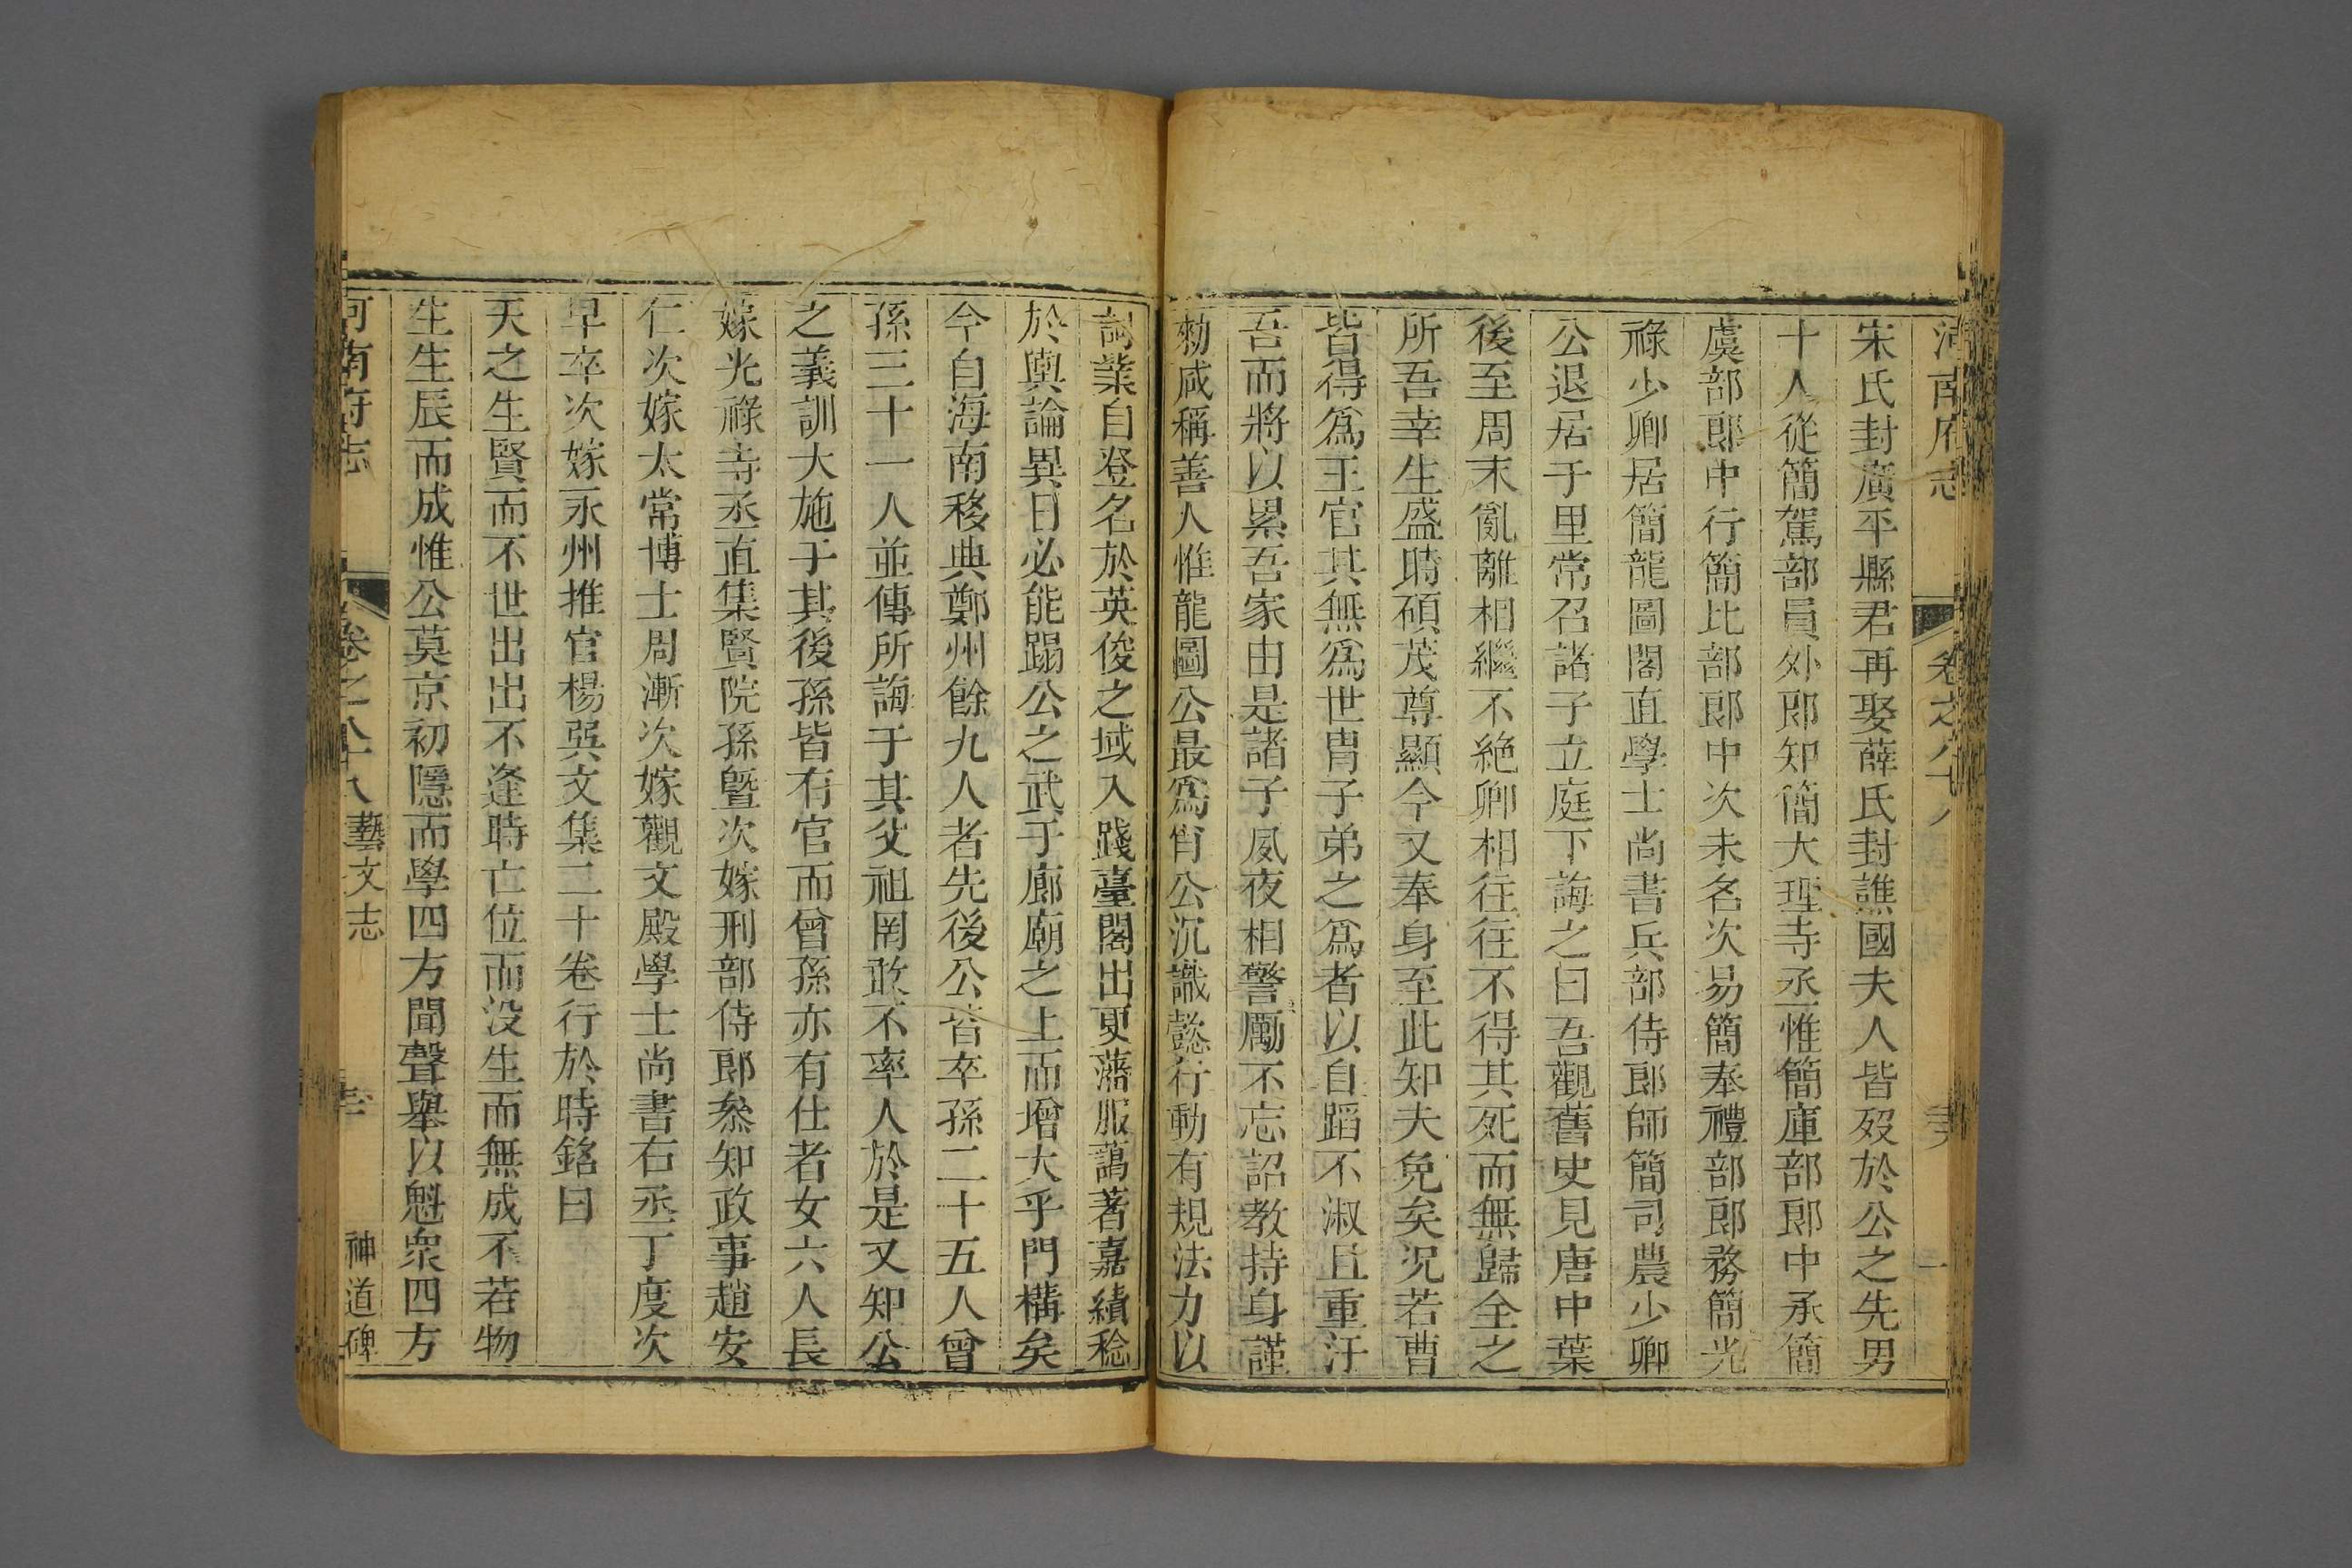 宋氏封廣平縣君再娶薛氏封譙國夫人皆歿於公之先男
十人從簡駕部員外郎知簡大理寺丞惟簡庫部郎中承簡
虞部郎中行簡比部郎中次未名次易簡奉禮部郎務簡光
祿少卿居簡龍圖閣直學士尚書兵部侍郎師簡司農少卿
公退居于里常召諸子立庭下誨之曰吾觀舊史見唐中葉
後至周末亂離相繼不絶卿相往往不得其死而無歸全之
所吾幸生盛時碩茂尊顯今又奉身至此知夫免矣況若曹
皆得爲王官其無爲世胄子弟之爲者以自蹈不淑且重汙
吾而將以累吾家由是諸子夙夜相警勵不忘詔教持身謹
勑咸稱善人惟龍圖公最爲肖公沉識懿行動有規法力以
詞業自登名於英俊之域入踐臺閣出更藩服藹著嘉績稔
於輿論異日必能蹋公之武于廊廟之上而增大乎門構矣
今自海南移典鄭州餘九人者先後公皆卒孫二十五人曾
孫三十一人並傳所誨于其父祖罔敢不率人於是又知公
之義訓大施于其後孫皆有官而曾孫亦有仕者女六人長
嫁光祿寺丞直集賢院孫曁次嫁刑部侍郎叅知政事趙安
仁次嫁太常博士周漸次嫁觀文殿學士尚書右丞丁度次
早卒次嫁永州推官楊㢲文集二十卷行於時銘曰
天之生賢而不世出出不逢時亡位而没生而無成不若物
生生辰而成惟公莫京初隱而學四方聞聲舉以魁衆四方
河南府志 卷之八十八 藝文志 神道碑